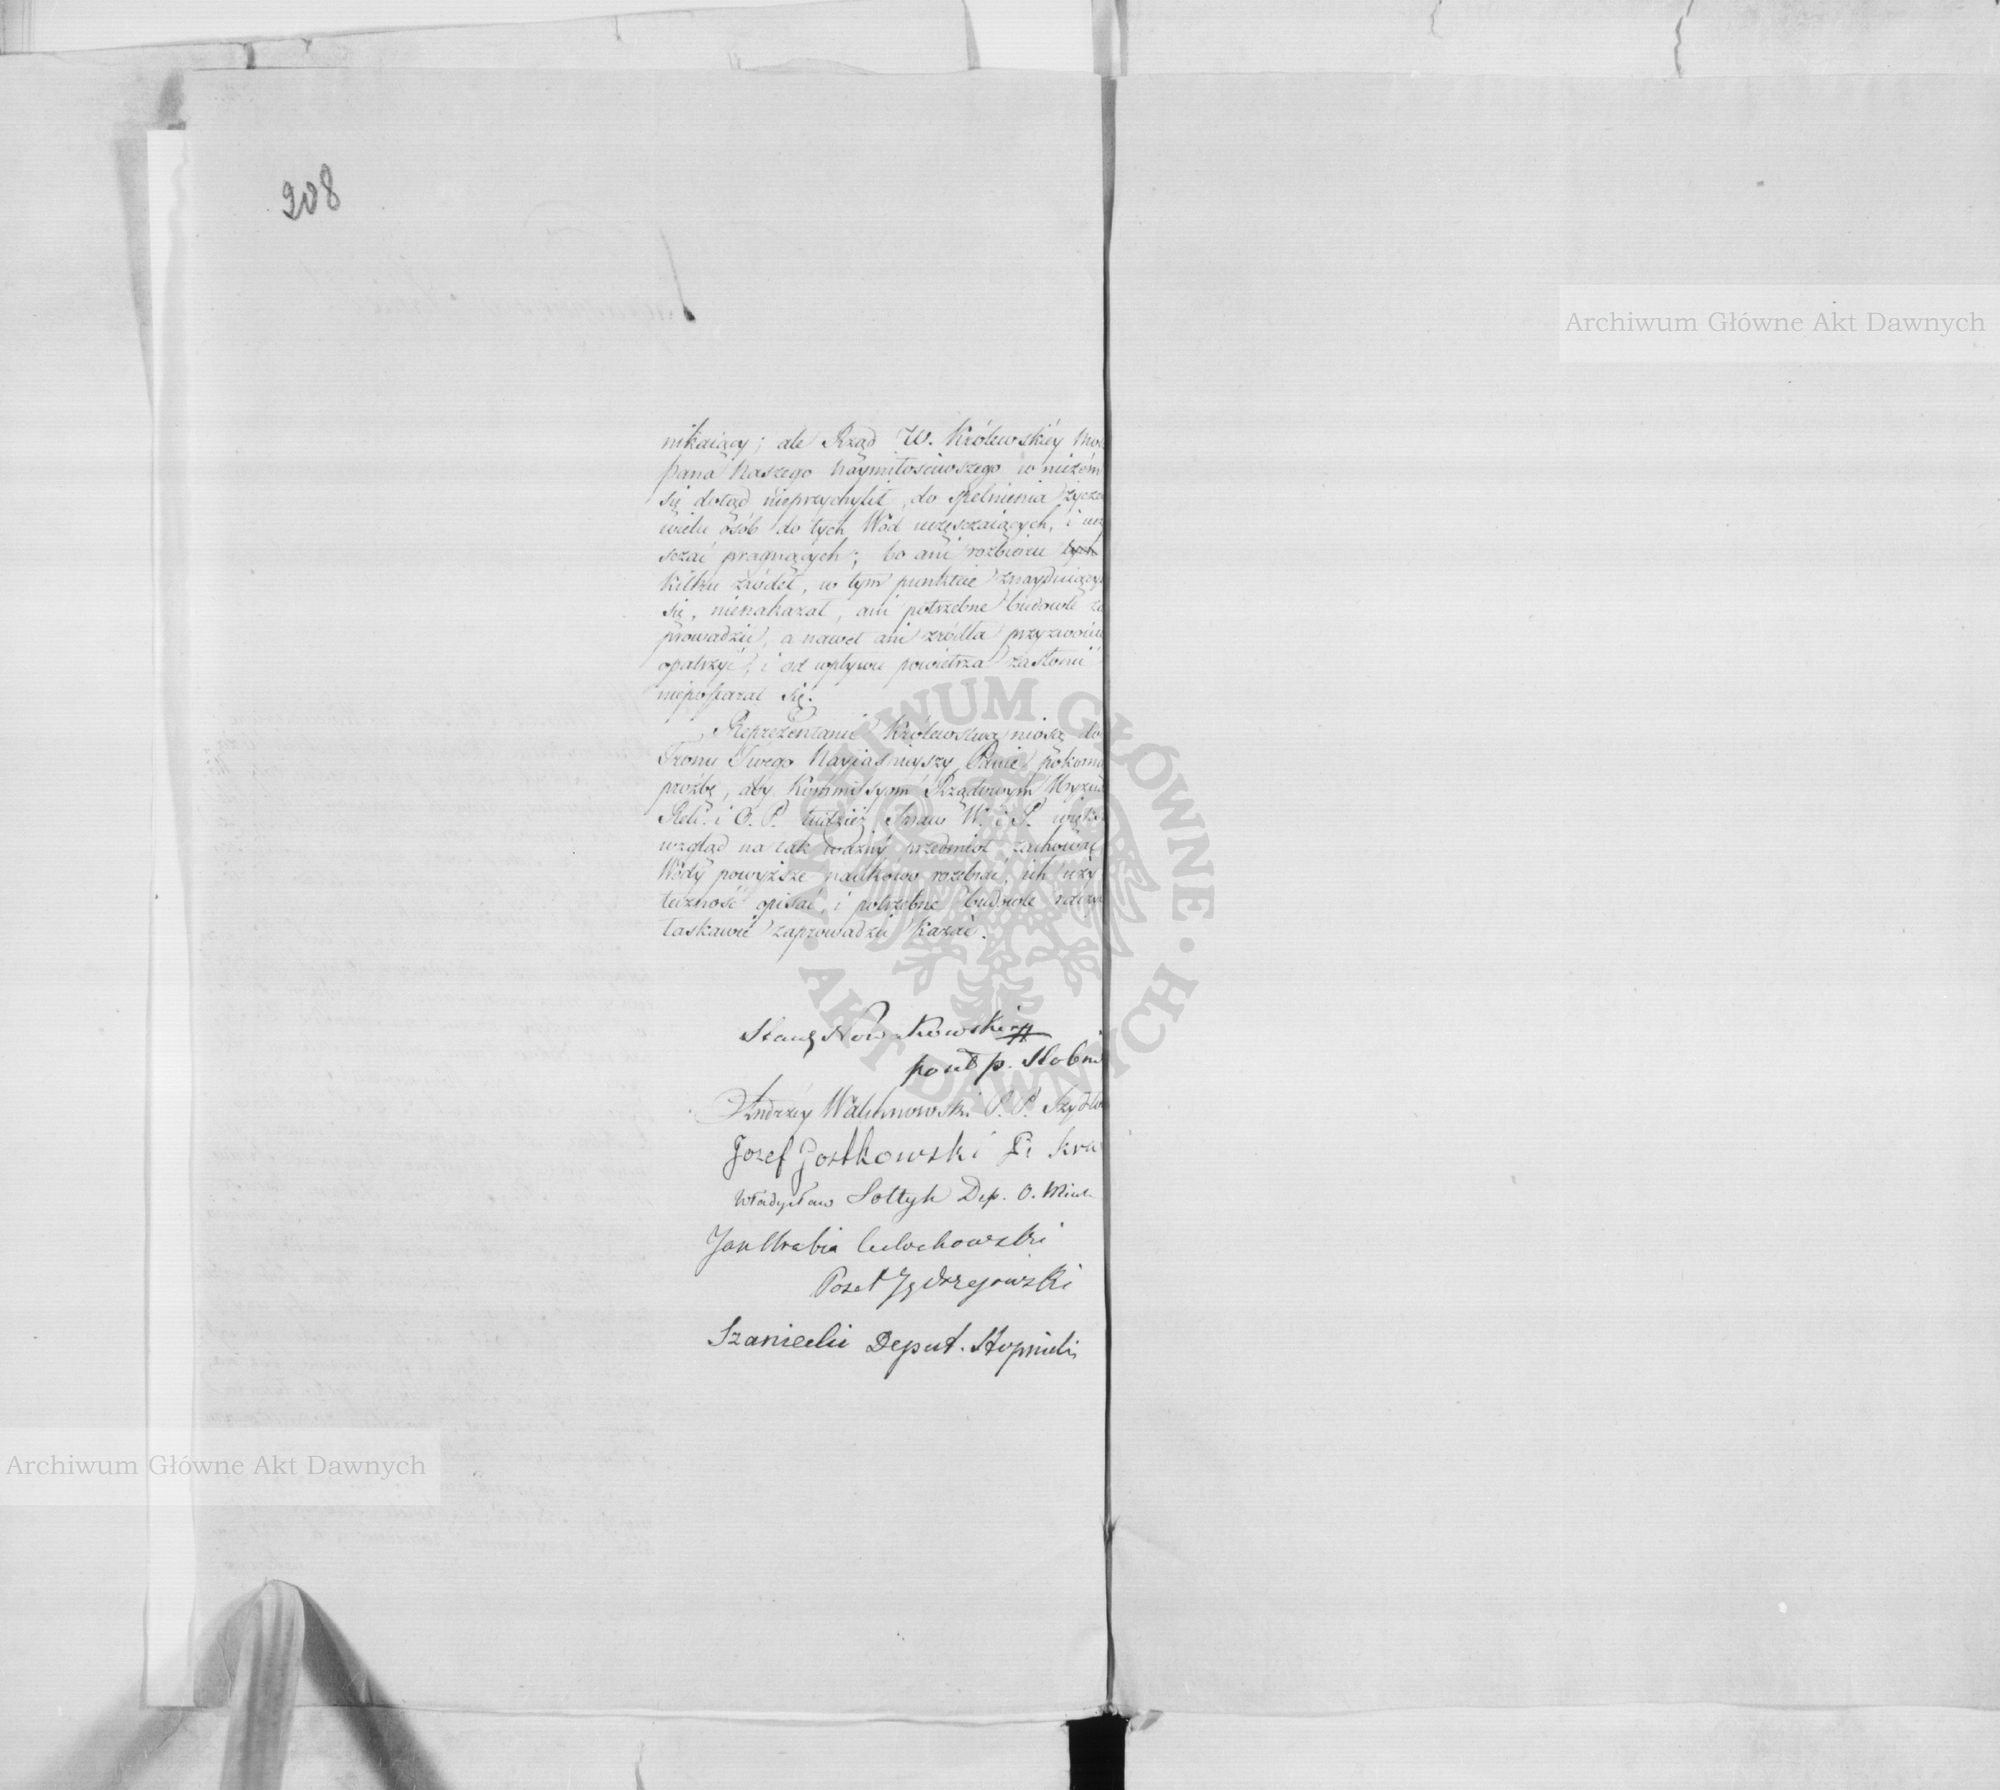 208
Archiwum Główne Akt Dawnych
nikaiący; ale Rząd W. Królewskiéy
Pana Naszego Naymiłościwszego w niczém
się dotąd nieprzychylił, do spełnienia życze
wielu osób do tych Wód uczęszczaiących, i
szczać pragnących; bo ani rozbioru tych
kilku źródeł, w tym punkcie znayduiący
się, nienakazał, ani potrzebne budowle
prowadzić, a nawet ani źródła przyzwoicie
opatrzyć, i od wpływu powietrza zasłonić
niepostarał się.
Reprezentanci Królewstwa niosą do
Tronu Twego Nayiaśnieyszy Panie pokorną
prożbę, aby Kommissyom Rządowym Wyznań
Reli: i O. P. tudzież Spraw W. i P.
wzgląd na tak ważny przedmiot zachować
Wody powyższe naukowo rozebrać, ich uży
teczność opisać, i potrzebne budowle
łaskawie zaprowadzić kazać.
ARCHIWUM GŁÓWNE
AKT DAWNYCH
Nowakowski
poseł p.
Andrzéy Walchnowski P. P. Szydło
Jozef Gostkowski
Władysław Sołtyk Dep. O.
Jan Hrabia Małachowski
Poseł Jędrzejowski
Szaniecki Deput. Stopnicki
Archiwum Główne Akt Dawnych